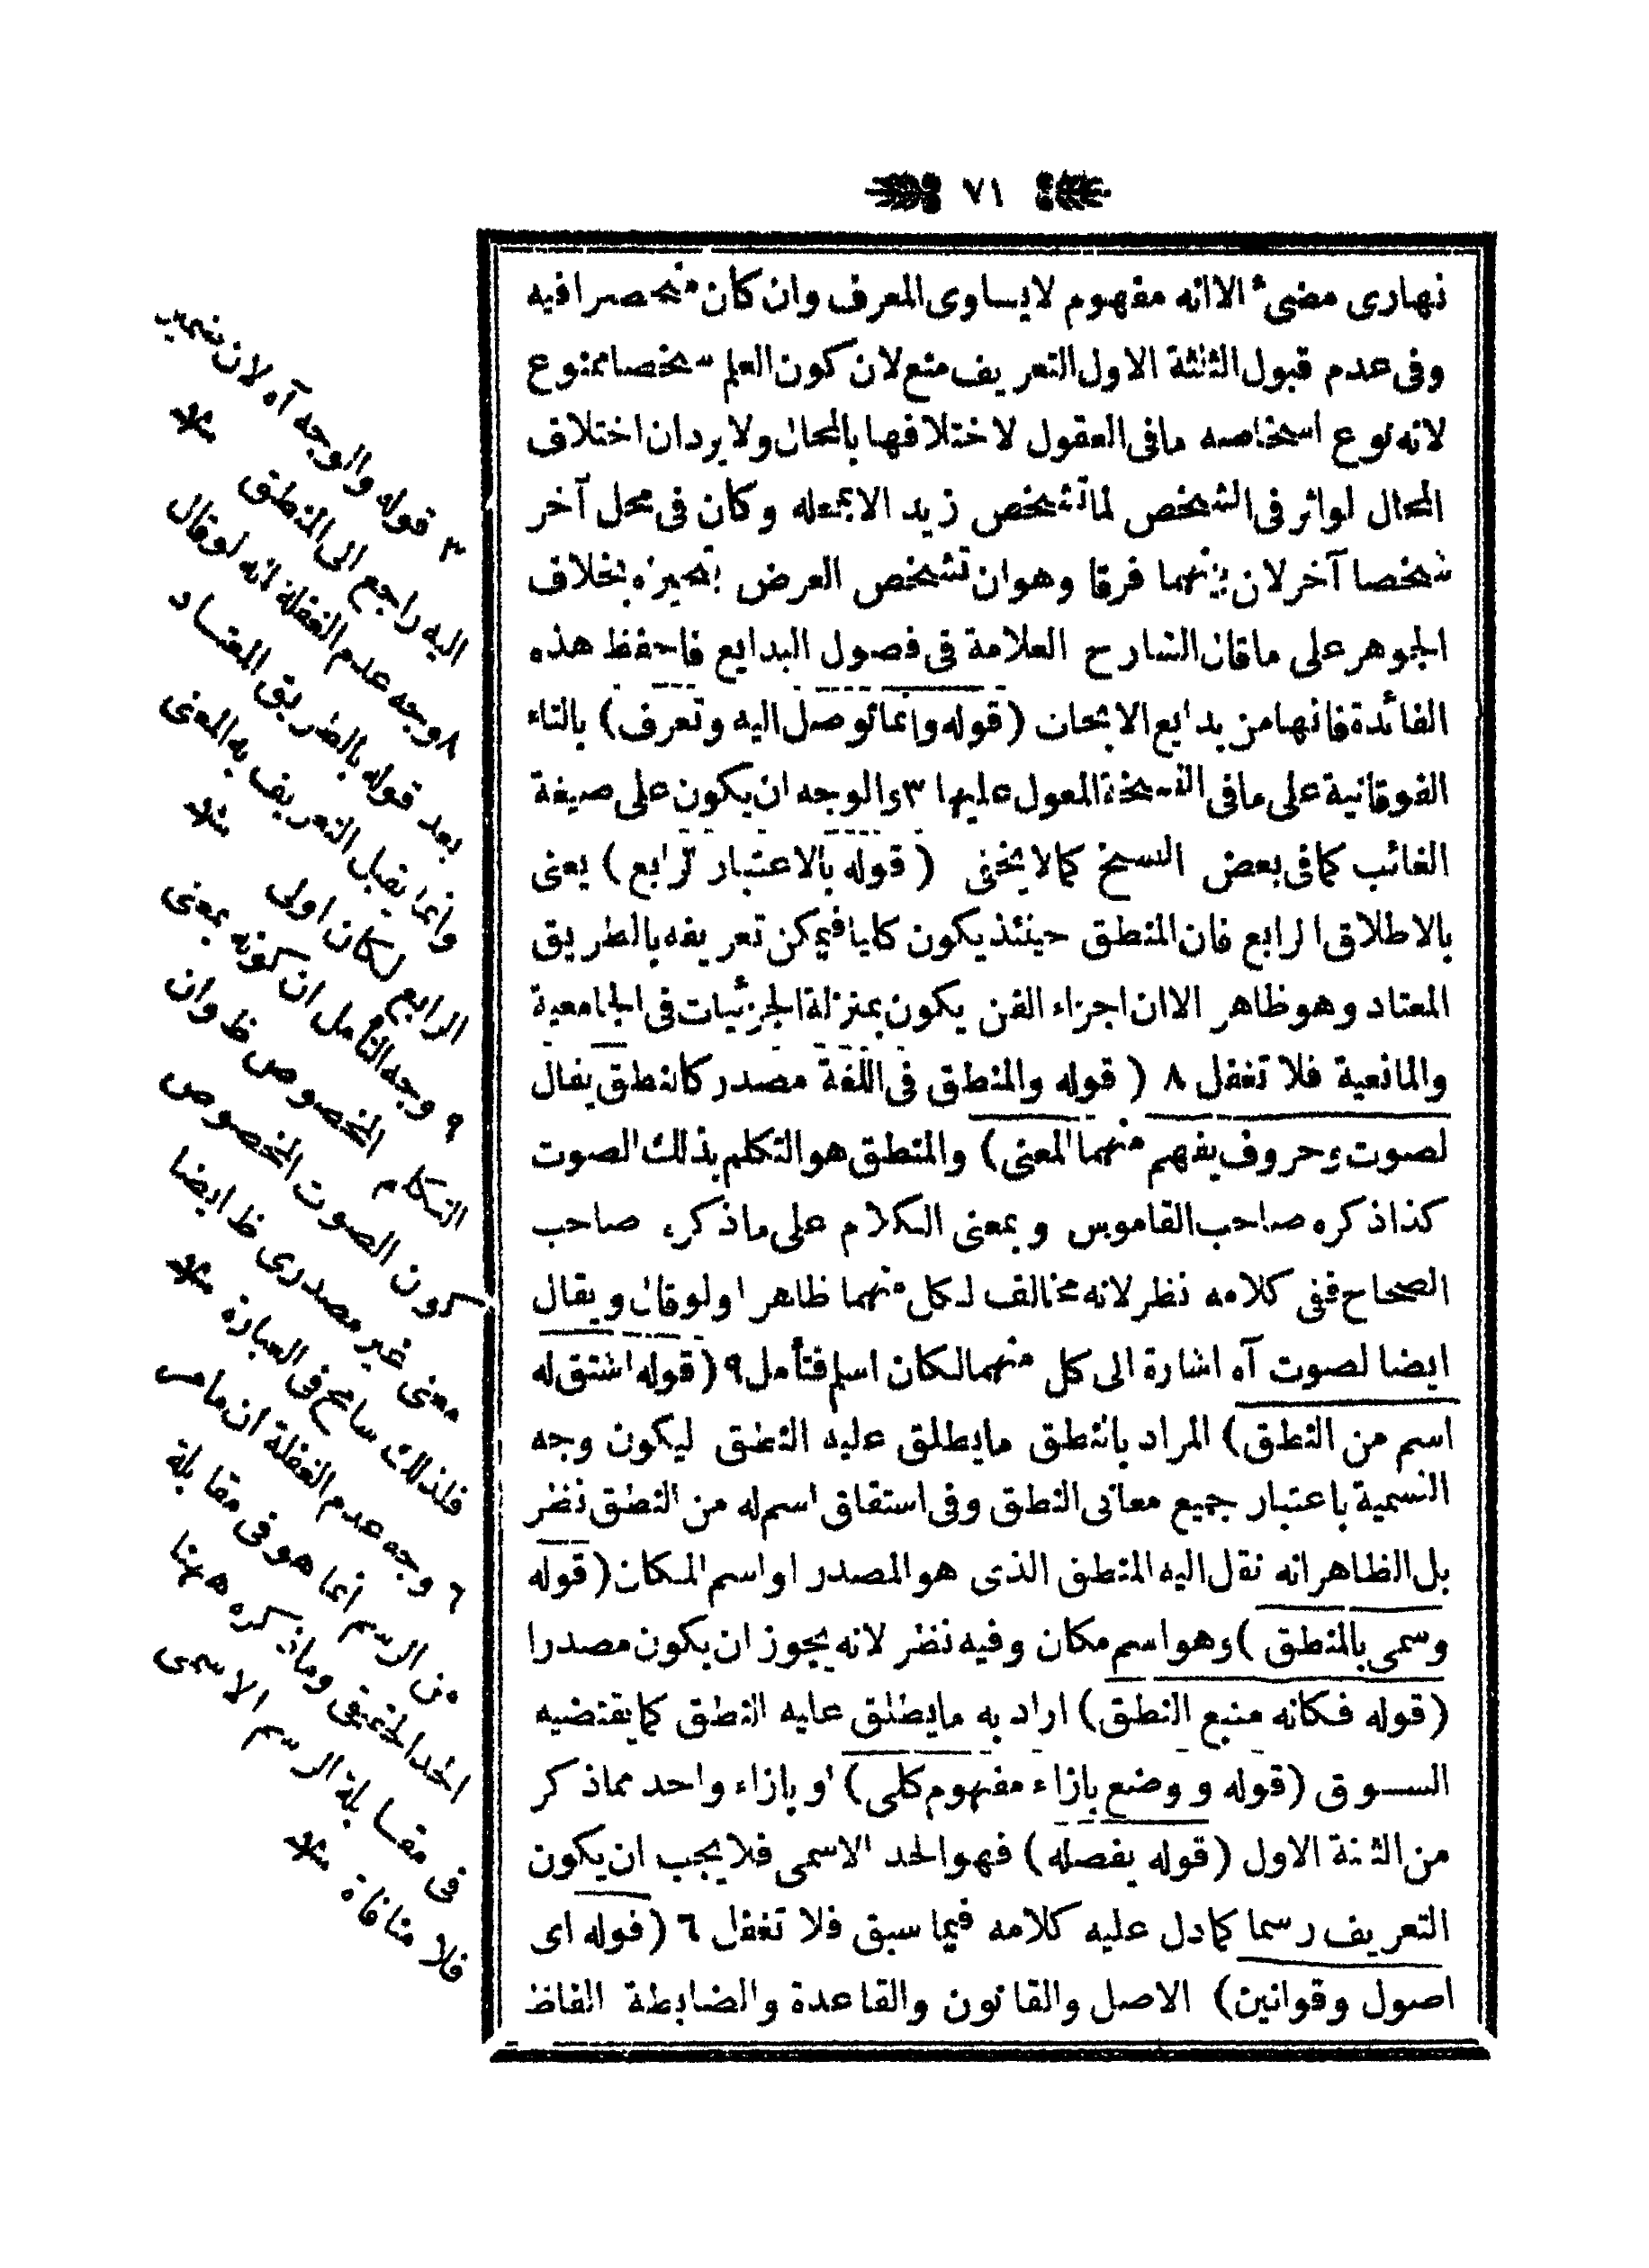 ٧١
نهارى مضئ الا انه مفهوم لا يساوى المعرف وان كان منحصرا فيه
وفى عدم قبول الثلثة الاول التعريف منع لان كون العلم شخصا ممنوع
لانه نوع اشخاصه ما فى العقول لاختلافها بالمحال ولا يرد ان اختلاف
المحال لو اثر فى الشخص لما تشخص زيد الا بمحله وكان فى محل آخر
شخصا آخر لان بينهما فرقا وهو ان تشخص العرض بتحيزه بخلاف
الجوهر على ما قال الشارح العلامة فى فصول البدايع فاحفظ هذه
الفائدة فانها من بدايع الابحاث (قوله وانما توصل اليه وتعرف) بالتاء
الفوقانية على ما فى النسخة المعول عليها ٣ والوجه ان يكون على صيغة
الغائب كما فى بعض النسخ كما لا يخفى (قوله بالاعتبار الرابع) يعنى
بالاطلاق الرابع فان المنطق حينئذ يكون كليا فيمكن تعريفه بالطريق
المعتاد وهو ظاهر الا ان اجزاء الفن يكون بمنزلة الجزئيات فى الجامعية
والمانعية فلا تغفل ٨ (قوله والمنطق فى اللغة مصدر كالنطق يقال
لصوت وحروف يفهم منهما المعنى) والمنطق هو التكلم بذلك الصوت
كذا ذكره صاحب القاموس وبمعنى الكلام على ما ذكره صاحب
الصحاح ففى كلامه نظر لانه مخالف لكل منهما ظاهرا ولو قال ويقال
ايضا لصوت آه اشارة الى كل منهما لكان اسلم فتأمل ٩ (قوله اشتق له
اسم من النطق) المراد بالنطق ما يطلق عليه النطق ليكون وجه
التسمية باعتبار جميع معانى النطق وفى اشتقاق اسم له من النطق نظر
بل الظاهر انه نقل اليه المنطق الذى هو المصدر او اسم المكان (قوله
وسمى بالمنطق) وهو اسم مكان وفيه نظر لانه يجوز ان يكون مصدرا
(قوله فكانه منبع النطق) اراد به ما يطلق عليه النطق كما يقتضيه
السوق (قوله و وضع بازاء مفهوم كلى) او بازاء واحد مما ذكر
من الثلثة الاول (قوله يفصله) فهو الحد الاسمى فلا يجب ان يكون
التعريف رسما كما دل عليه كلامه فيما سبق فلا تغفل ٦ (قوله اى
اصول وقوانين) الاصل والقانون والقاعدة والضابطة الفاظ
٣ قوله والوجه آه لان ضمير
اليه راجع الى المنطق
٨ وجه عدم الغفلة انه لو قال
بعد قوله بالطريق المعتاد
وانما يقبل التعريف به المعنى
الرابع لكان اولى
٩ وجه التأمل ان كونه بمعنى
التكلم المخصوص ظ وان
كون الصوت المخصوص
معنى غير مصدرى ظ ايضا
فلذلك سامح فى العبارة
٦ وجه عدم الغفلة ان ما مر
من الرسم انما هو فى مقابلة
الحد الحقيقى وما ذكره ههنا
فى مقابلة الرسم الاسمى
فلا منافاة